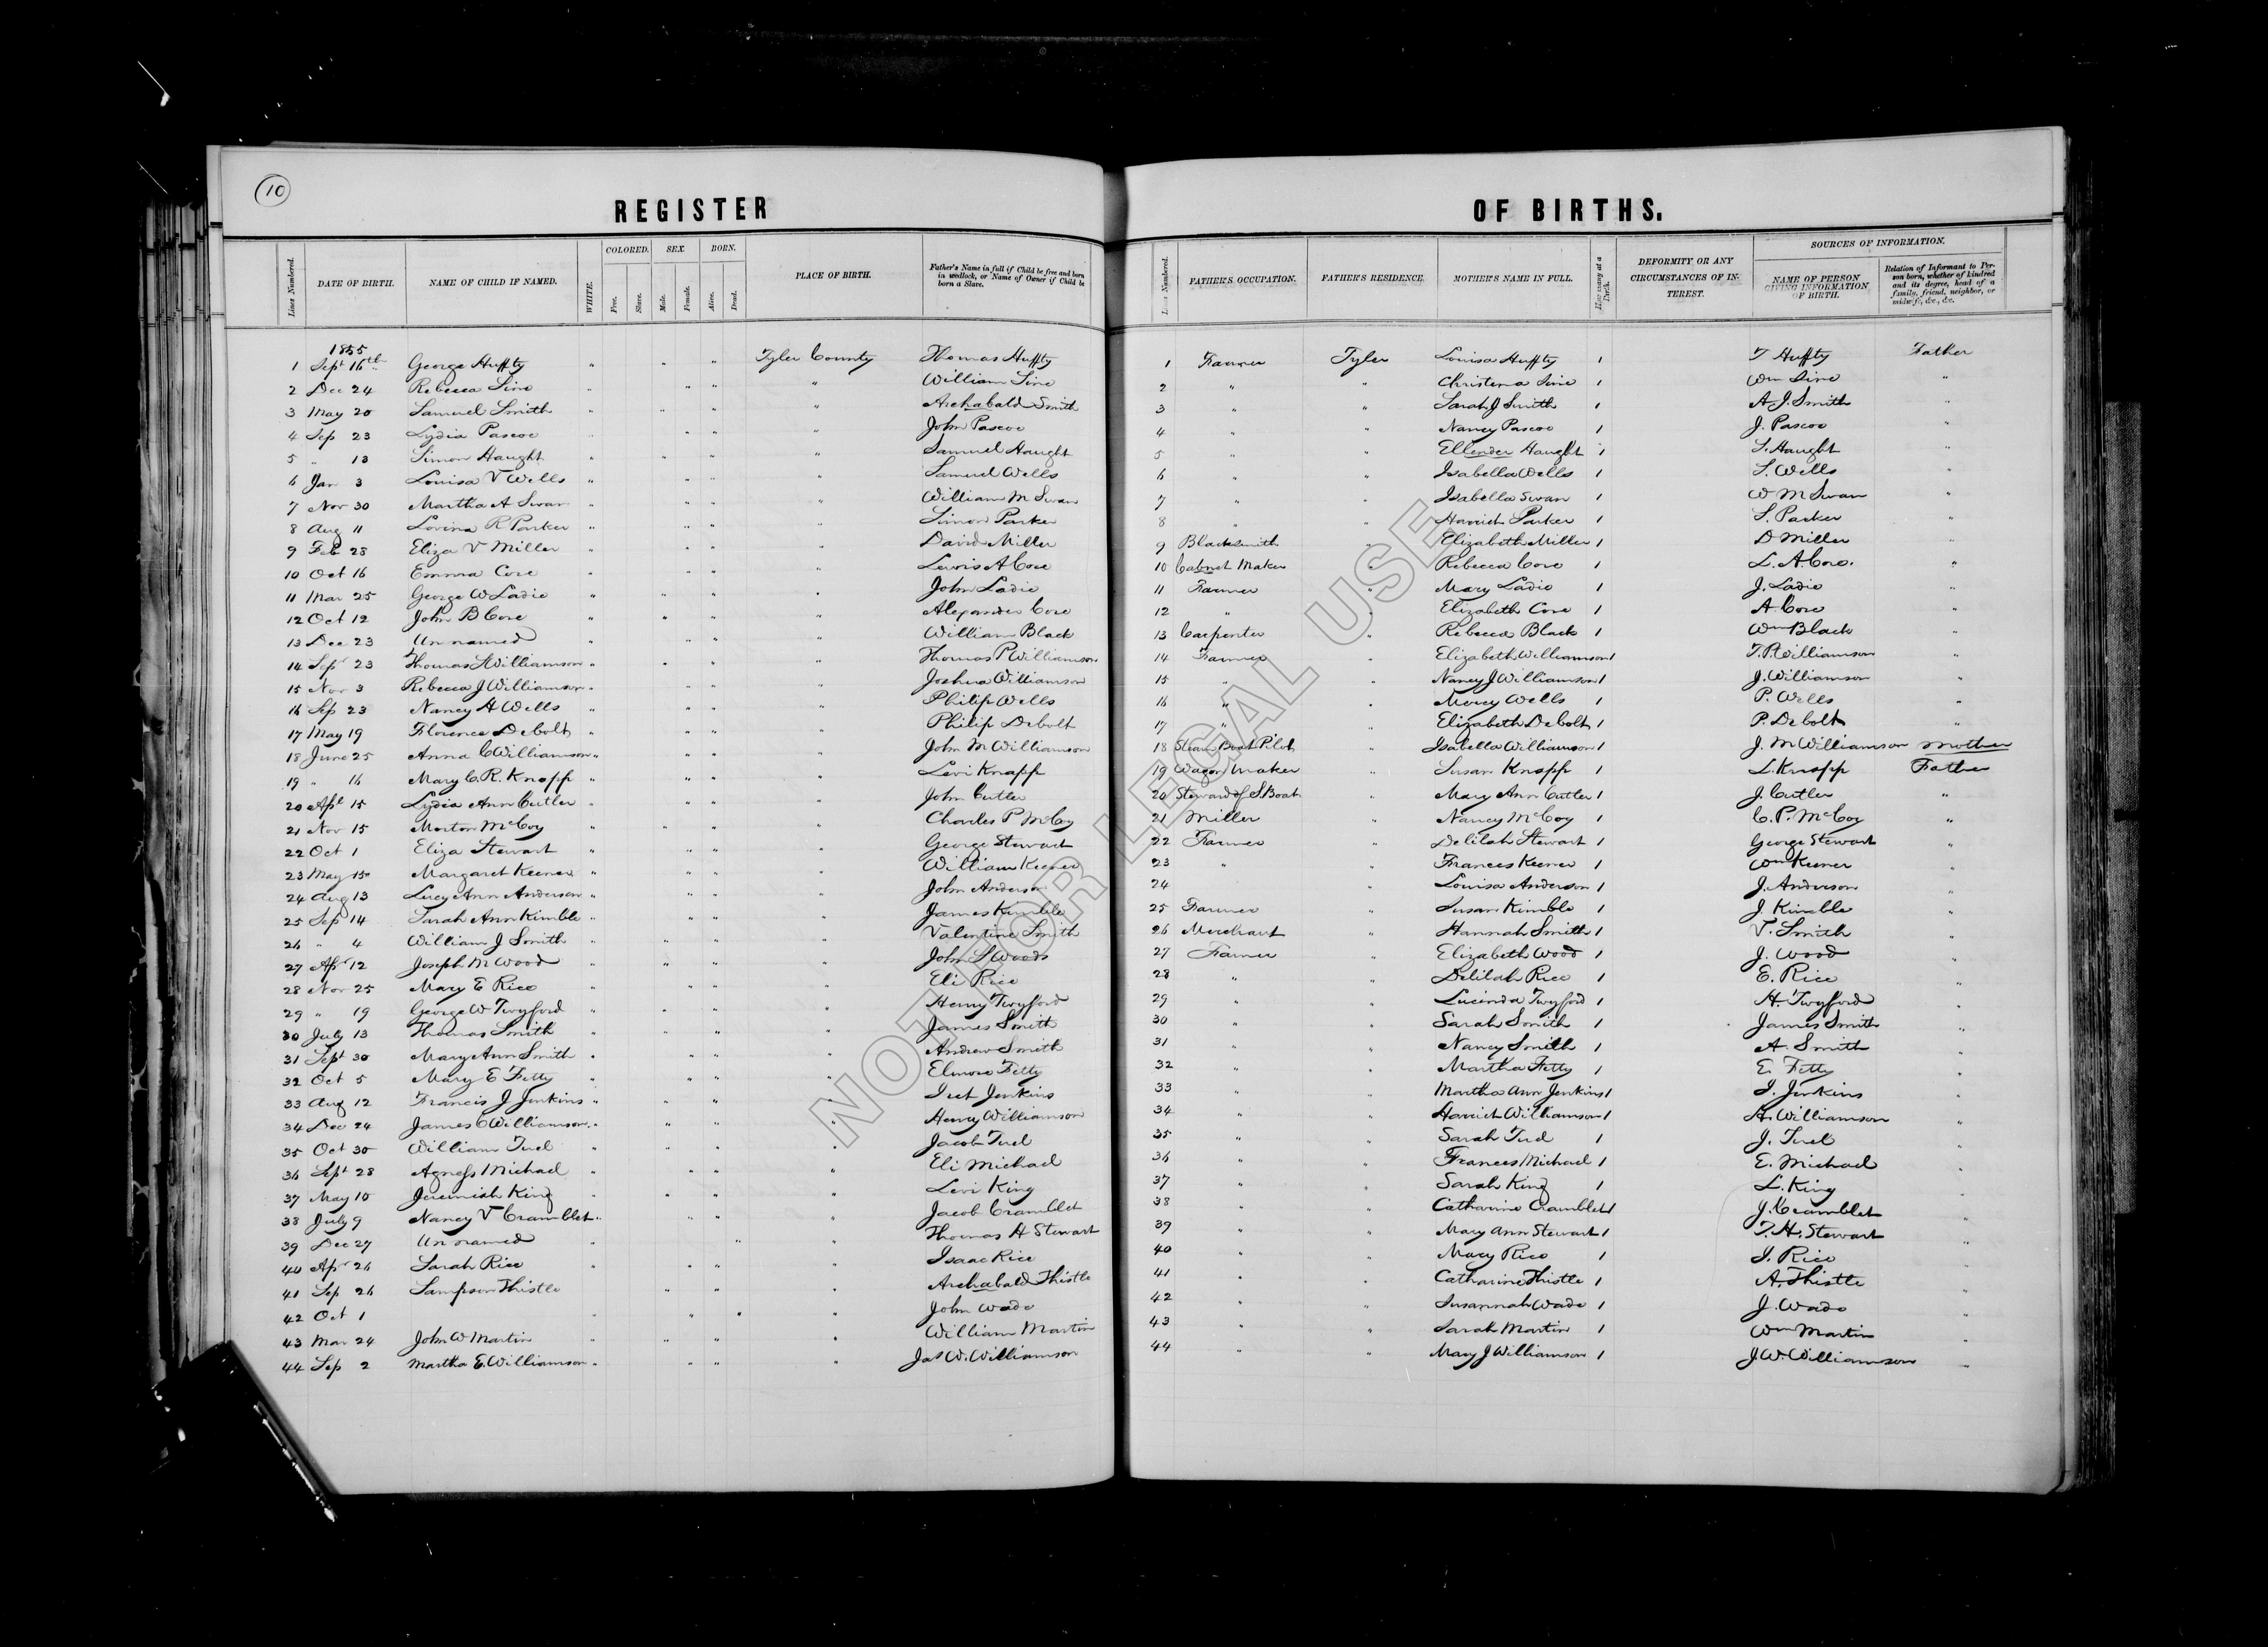 10
REGISTER OF BIRTHS.
Lines Numbered. DATE OF BIRTH. NAME OF CHILD IF NAMED. WHITE. COLORED. Free. Slave. SEX. Male. Female. BORN. Alive. Dead. PLACE OF BIRTH. Father's Name in full if Child be free and born in wedlock, or Name of Owner if Child be born a Slave.
Lines Numbered. FATHER'S OCCUPATION. FATHER'S RESIDENCE. MOTHER'S NAME IN FULL. How many at a Birth. DEFORMITY OR ANY CIRCUMSTANCES OF INTEREST. SOURCES OF INFORMATION. NAME OF PERSON GIVING INFORMATION OF BIRTH. Relation of Informant to Person born, whether of kindred and its degree, head of a family, friend, neighbor, or midwife, &c., &c.
1855
1 Sept 16th George Huffty " " " Tyler County Thomas Huffty 1 Farmer Tyler Louisa Huffty 1 T Huffty Father
2 Dec 24 Rebecca Sine " " " " William Sine 2 " " Christena Sine 1 Wm Sine "
3 May 20 Samuel Smith " " " " Archabald Smith 3 " " Sarah J Smith 1 A. J. Smith "
4 Sep 23 Lydia Pascoe " " " " John Pascoe 4 " " Nancy Pascoe 1 J. Pascoe "
5 " 13 Simon Haught " " " " Samuel Haught 5 " " Ellender Haught 1 S. Haught "
6 Jan 3 Louisa V Wells " " " " Samuel Wells 6 " " Isabella Wells 1 S. Wells "
7 Nov 30 Martha A Swan " " " " William M Swan 7 " " Isabella Swan 1 W M Swan "
8 Aug 11 Lovina R Parker " " " " Simon Parker 8 " " Harriet Parker 1 S. Parker "
9 Feb 28 Eliza V Miller " " " " David Miller 9 Blacksmith " Elizabeth Miller 1 D Miller "
10 Oct 16 Emma Core " " " " Lewis A Core 10 Cabnet Maker " Rebecca Core 1 L. A. Core. "
11 Mar 25 George W Ladie " " " " John Ladie 11 Farmer " Mary Ladie 1 J. Ladie "
12 Oct 12 John B Core " " " " Alexander Core 12 " " Elizabeth Core 1 A. Core "
13 Dec 23 Un named " " " " William Black 13 Carpenter " Rebecca Black 1 Wm Black "
14 Sept 23 Thomas S Williamson " " " " Thomas P Williamson 14 Farmer " Elizabeth Williamson 1 T. P. Williamson "
15 Nov 3 Rebecca J Williamson " " " " Joshua Williamson 15 " " Nancy J Williamson 1 J. Williamson "
16 Sep 23 Nancy A Wells " " " " Philip Wells 16 " " Mercy Wells 1 P. Wells "
17 May 19 Florence Debolt " " " " Philip Debolt 17 " " Elizabeth Debolt 1 P. Debolt "
18 June 25 Anna C Williamson " " " " John M Williamson 18 Steam Boat Pilot " Isabella Williamson 1 J. M Williamson Mother
19 " 16 Mary C. R. Knapp " " " " Levi Knapp 19 Wagon Maker " Susan Knapp 1 L. Knapp Father
20 Apl 15 Lydia Ann Cutler " " " " John Cutler 20 Steward of S. Boat " Mary Ann Cutler 1 J. Cutler "
21 Nov 15 Morton McCoy " " " " Charles P McCoy 21 Miller " Nancy McCoy 1 C. P. McCoy "
22 Oct 1 Eliza Stewart " " " " George Stewart 22 Farmer " Delilah Stewart 1 George Stewart "
23 May 15 Margaret Keener " " " " William Keener 23 " " Frances Keener 1 Wm Keener "
24 Aug 13 Lucy Ann Anderson " " " " John Anderson 24 " Louisa Anderson 1 J. Anderson "
25 Sep 14 Sarah Ann Kimble " " " " James Kimble 25 Farmer " Susan Kimble 1 J. Kimble "
26 " 4 William J Smith " " " " Valentine Smith 26 Merchant " Hannah Smith 1 V. Smith "
27 Apr 12 Joseph M Wood " " " " John S Woods 27 Farmer " Elizabeth Wood 1 J. Wood "
28 Nov 25 Mary E Rice " " " " Eli Rice 28 " " Delilah Rice 1 E. Rice "
29 " 19 George W Twyford " " " " Henry Twyford 29 " " Lucinda Twyford 1 H. Twyford "
30 July 13 Thomas Smith " " " " James Smith 30 " " Sarah Smith 1 James Smith "
31 Sept 30 Mary Ann Smith " " " " Andrew Smith 31 " " Nancy Smith 1 A. Smith "
32 Oct 5 Mary E Fetty " " " " Elmore Fetty 32 " " Martha Fetty 1 E. Fetty "
33 Aug 12 Francis J Jenkins " " " " Jenkins 33 " " Martha Ann Jenkins 1 I. Jenkins "
34 Dec 24 James C Williamson " " " " Henry Williamson 34 " " Harriet Williamson 1 H. Williamson "
35 Oct 30 William Tuel " " " " Jacob Tuel 35 " " Sarah Tuel 1 J. Tuel "
36 Sept 28 Agness Michael " " " " Eli Michael 36 " " Frances Michael 1 E. Michael "
37 May 10 Jeremiah King " " " " Levi King 37 " " Sarah King 1 L. King "
38 July 9 Nancy V Cramblet " " " " Jacob Cramblet 38 " " Catharine Cramblet 1 J. Cramblet "
39 Dec 27 Un named " " " Thomas H Stewart 39 " " Mary Ann Stewart 1 T. H. Stewart "
40 Apr 26 Sarah Rice " " " " Isaac Rice 40 " " Mary Rice 1 I. Rice "
41 Sep 26 Sampson Thistle " " " Archabald Thistle 41 " " Catharine Thistle 1 A. Thistle "
42 Oct 1 " " " " John Wade 42 " " Susannah Wade 1 J. Wade "
43 Mar 24 John W Martin " " " " William Martin 43 " " Sarah Martin 1 Wm Martin "
44 Sep 2 Martha E Williamson " " " " Jas W. Williamson 44 " " Mary J Williamson 1 J. W. Williamson "
NOT FOR LEGAL USE